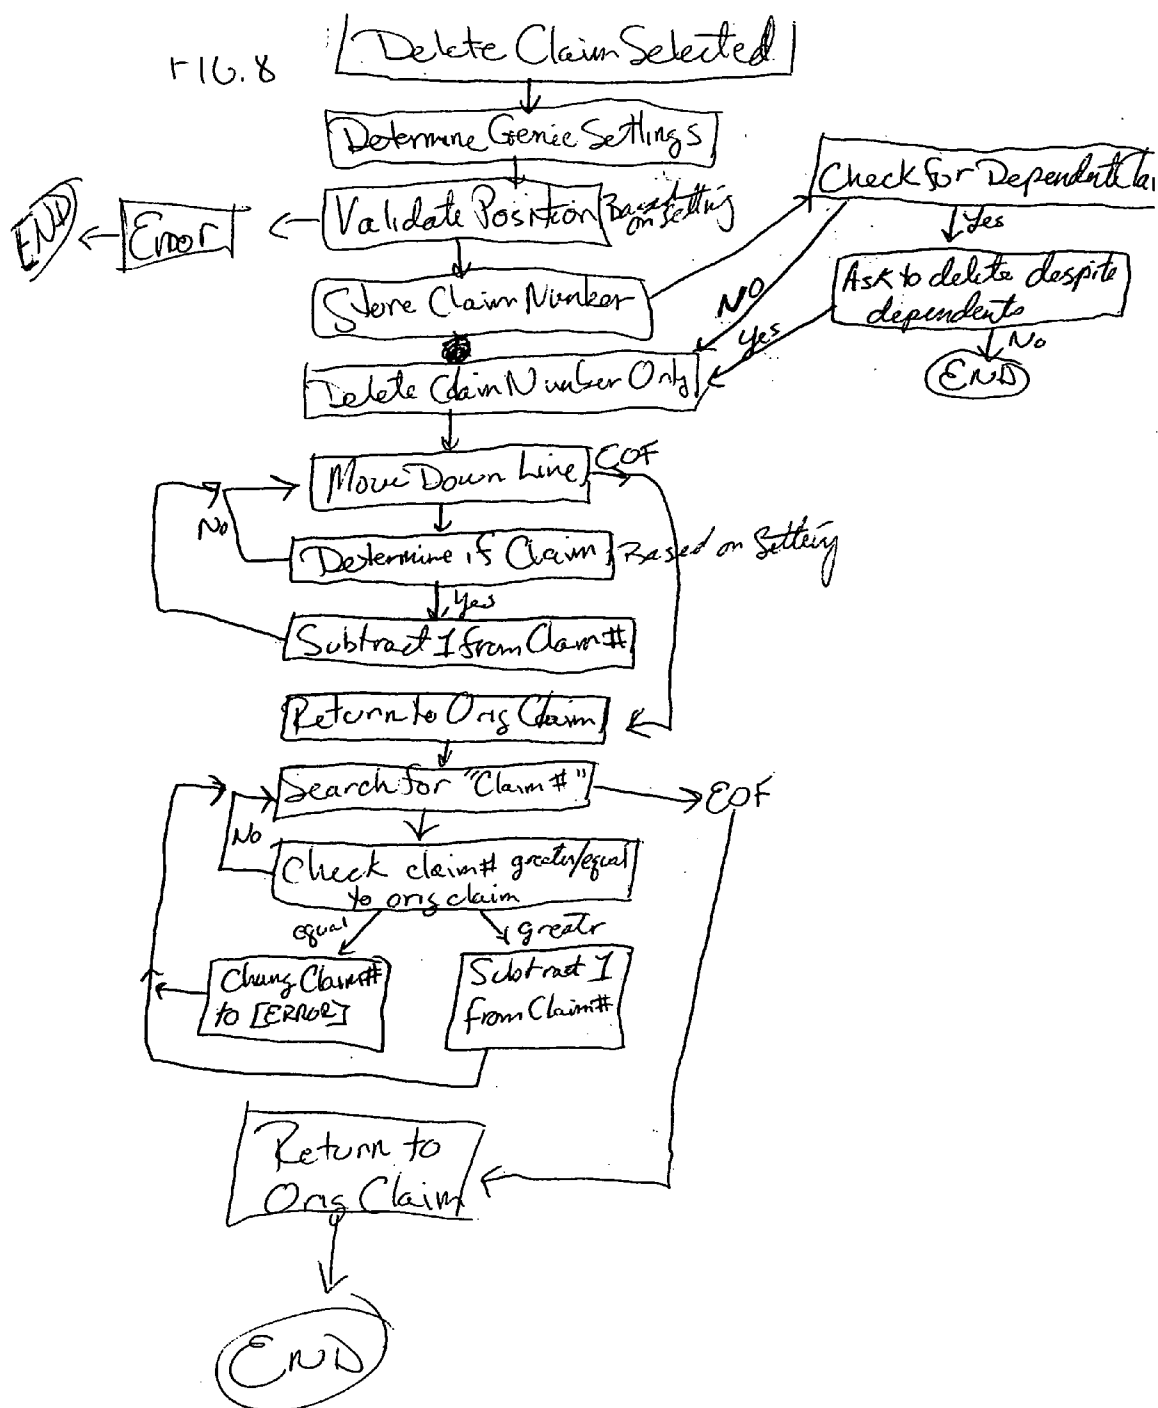 FIG. 8
Delete Claim Selected
Determine Genie Settings
Validate Position
Based
on Setting
Error
END
Store Claim Number
Check for Dependent Clai
Yes
Ask to delete despite
dependents
No
END
NO
Yes
Delete Claim Number Only
Move Down Line
EOF
No
Determine if Claim
Based on Setting
Yes
Subtract 1 from Claim #
Return to Orig Claim
Search for "Claim #"
EOF
No
Check claim # greater/equal
to orig claim
equal
greatr
Chang Claim#
to [ERROR]
Subtract 1
from Claim#
Return to
Orig Claim
END